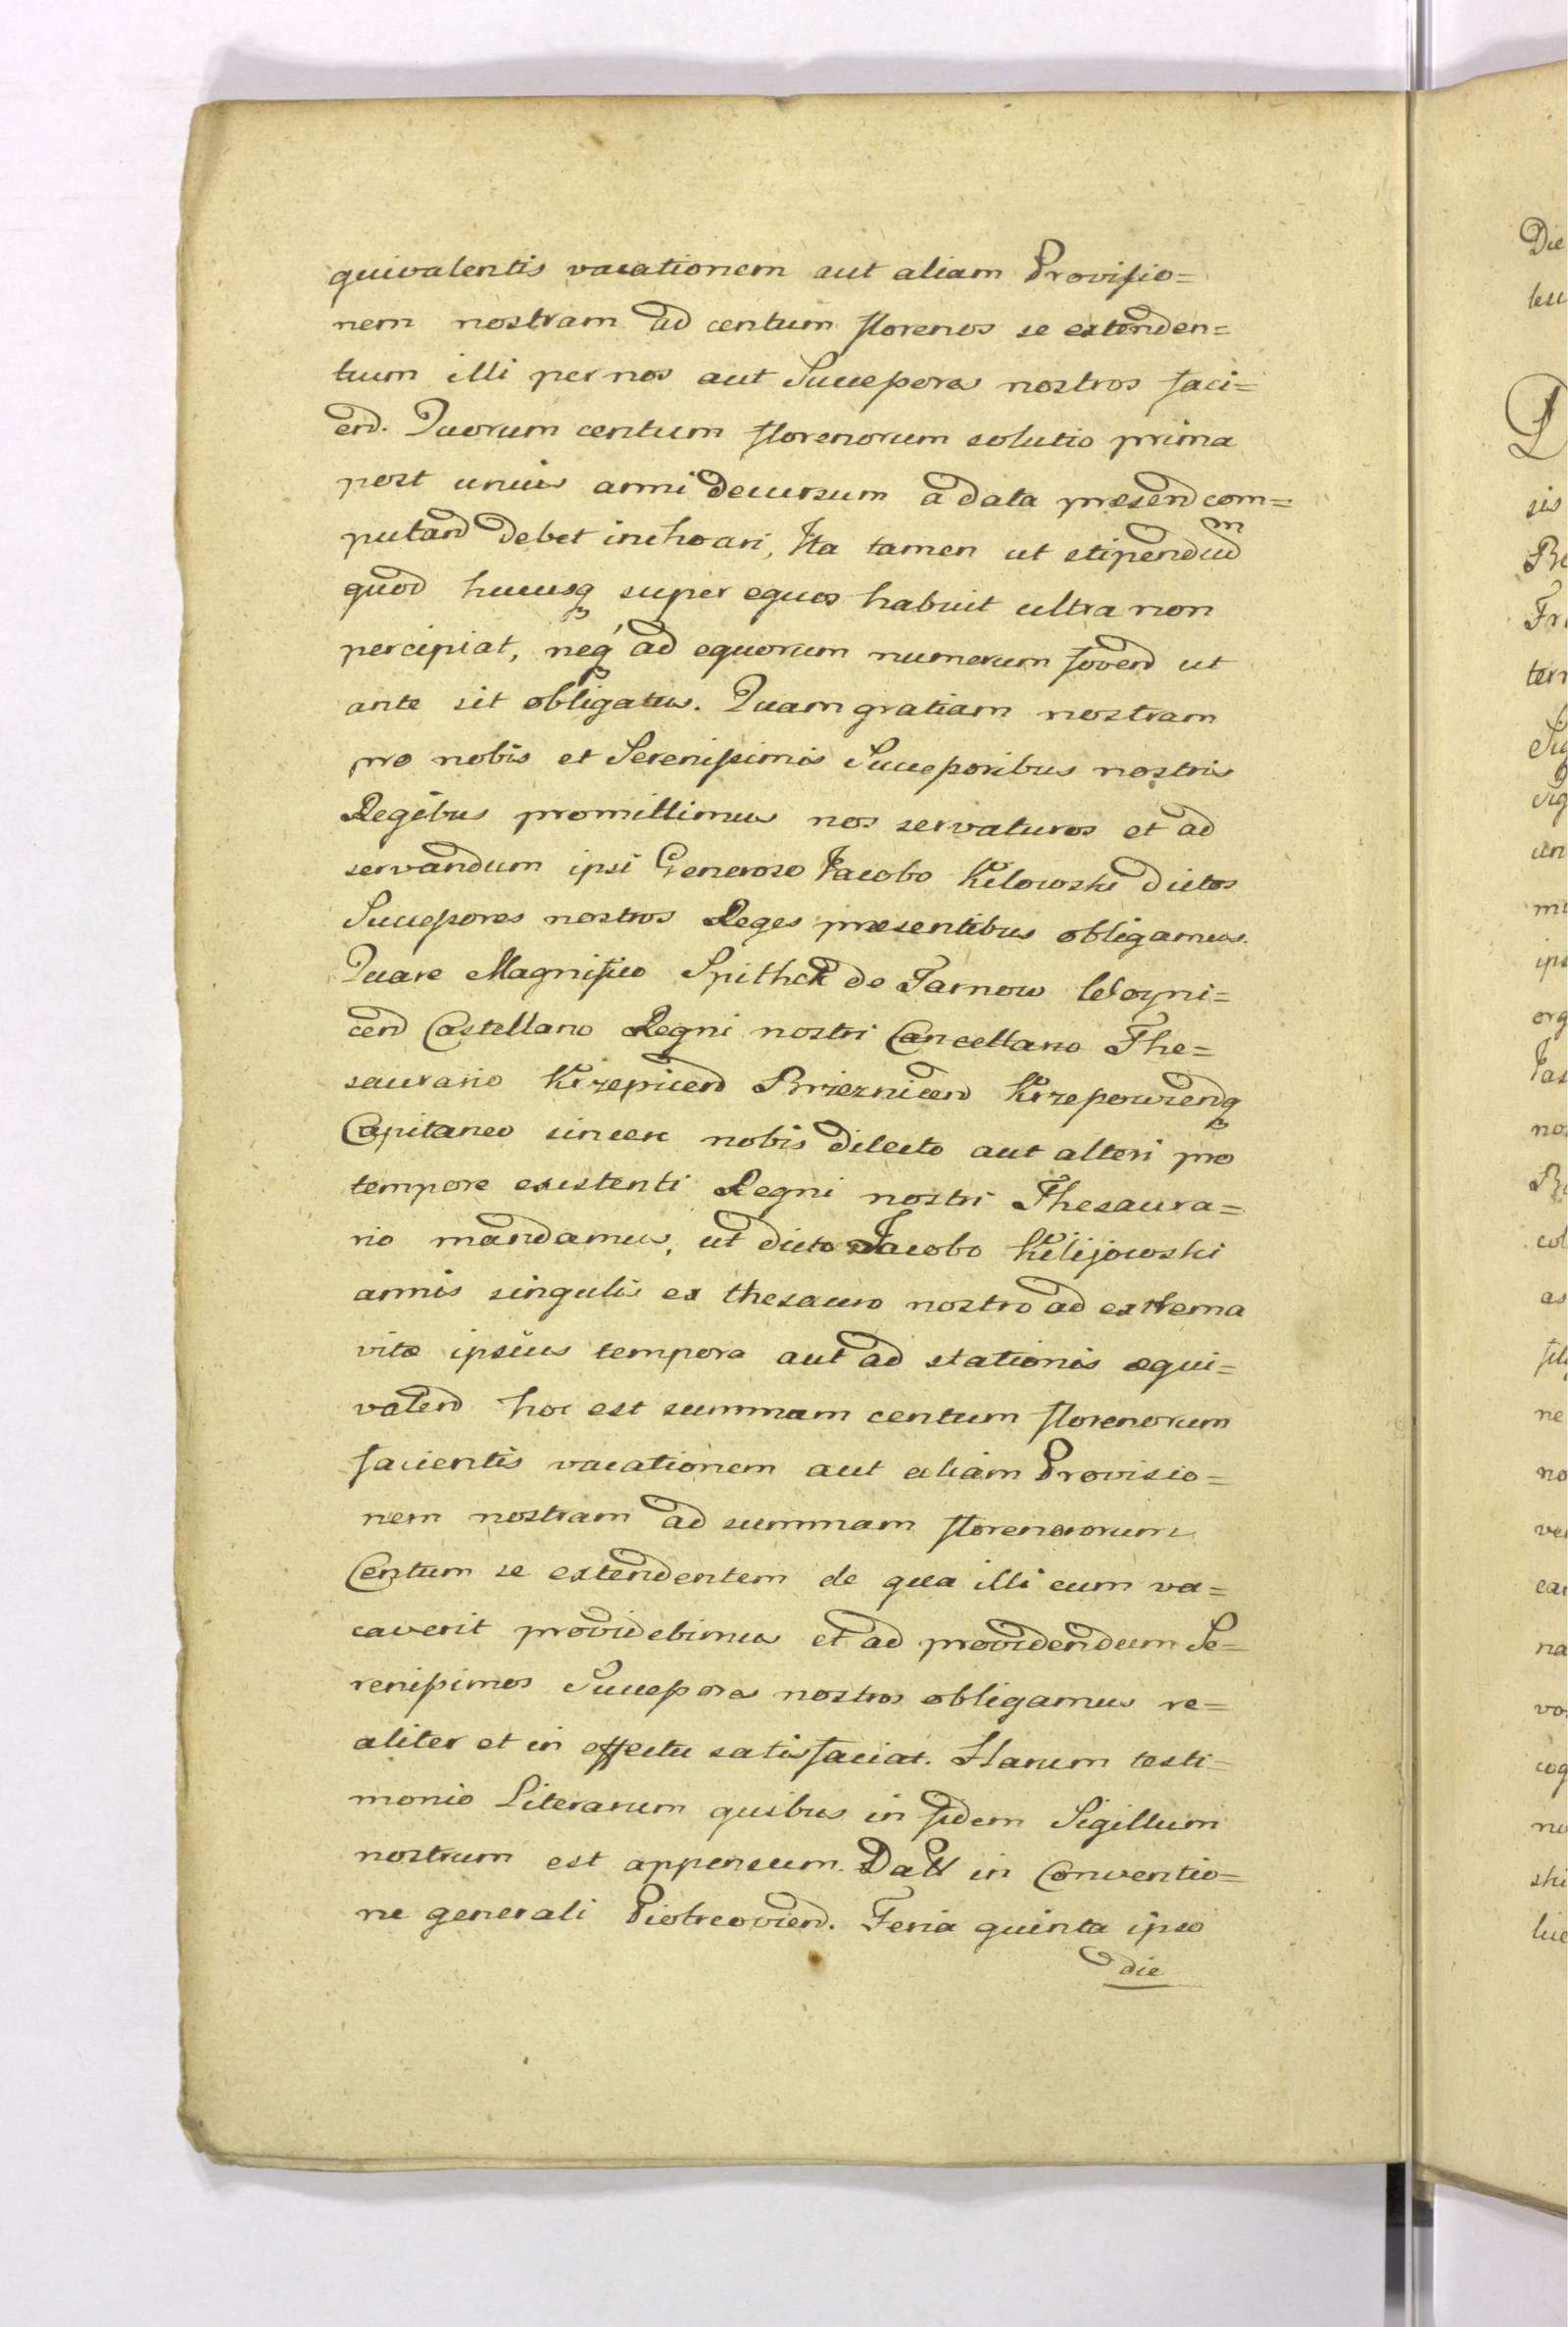 quivalentis vacationem aut aliam Provisio=
nem nostram ad centum florenos se extenden=
tium illi per nos aut Successores nostros faci=
end. Quorum centum florenorum solutio prima
post unius anni decursum a data præsend com=
putand debet inchoari, Ita tamen ut stipendiũ
quod hucusq super equos habuit ultra non
percipiat, neq ad equorum numerum fovend ut
ante sit obligatus. Quam gratiam nostram
pro nobis et Serenissimis Successoribus nostris
Regibus promittimus nos servaturos et ad
servandum ipsi Generoso Jacobo Kilowski dictos
Successores nostros Reges præsentibus obligamus.
Quare Magnifico Spithek de Tarnow Woyni=
cend Castellano Regni nostri Cancellario The=
saurario Krzepicend Brzeznicend Krzepowiendq
Capitaneo sincere nobis dilecto aut alteri pro
tempore existenti Regni nostri Thesaura=
rio mandamus, ut dicto Jacobo Kilijowski
annis singulis ex thesauro nostro ad extrema
vitæ ipsius tempora aut ad stationis æqui=
valend hoc est summam centum florenorum
facientis vacationem aut aliam Provisio=
nem nostram ad summam florenorum
Centum se extendentem de qua illi cum va=
caverit providebimus et ad providendum Se=
renissimos Successores nostros obligamus re=
aliter et in effectu satisfaciat. Harum testi=
monio Literarum quibus in fidem Sigillum
nostrum est appensum. Datt in Conventio=
ne generali Piotrcoviend. Feria quinta ipso
die
Die
sis
Fri
un
ips
org
col
as
ne
no
na